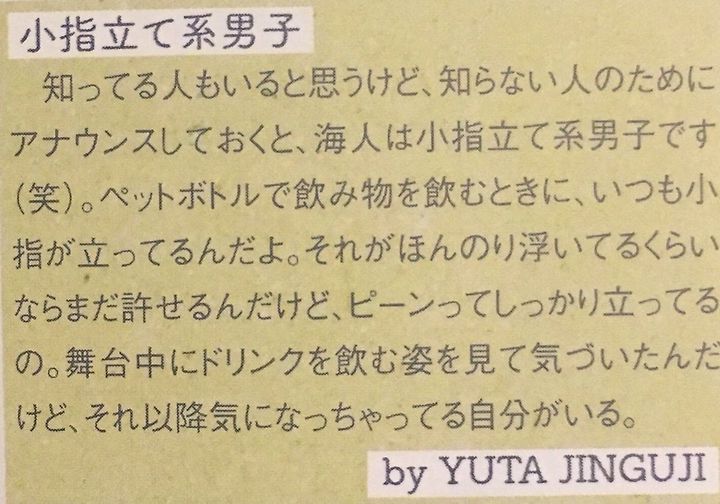 小指立て系男子
知ってる人もいると思うけど、知らない人のために
アナウンスしておくと、海人は小指立て系男子です
（笑）。ペットボトルで飲み物を飲むときに、いつも小
指が立ってるんだよ。それがほんのり浮いてるくらい
ならまだ許せるんだけど、ピーンってしっかり立ってる
の。舞台中にドリンクを飲む姿を見て気づいたんだ
けど、それ以降気になっちゃってる自分がいる。
by YUTA JINGUJI